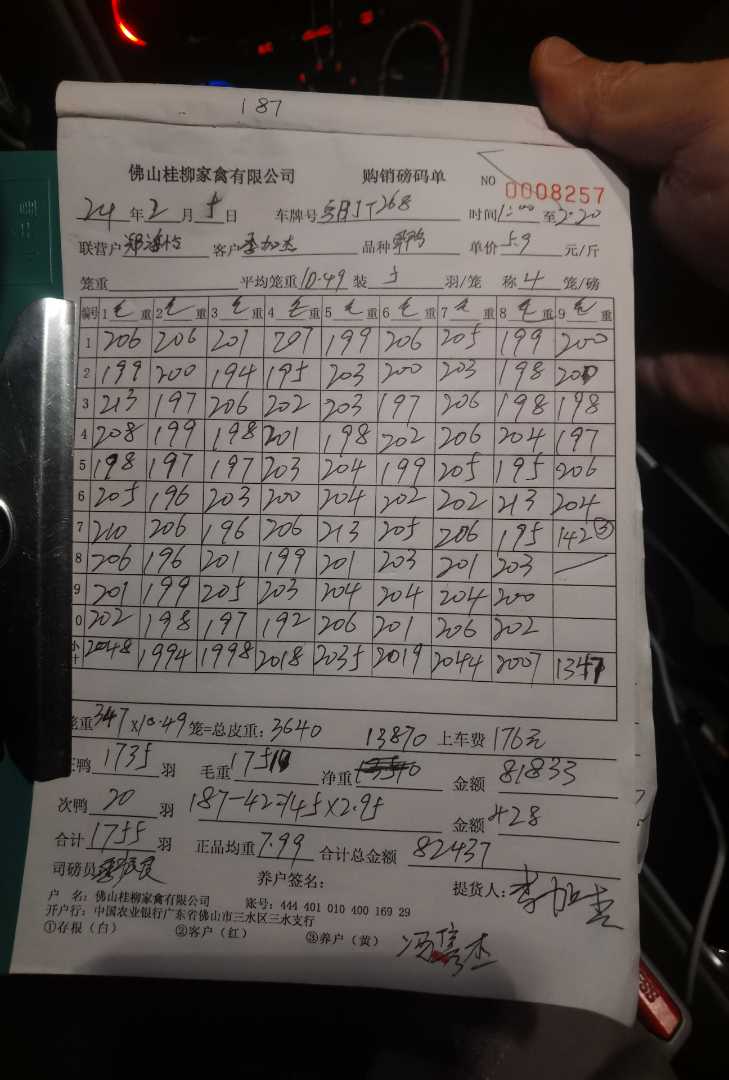 187
佛山桂柳家禽有限公司 购销磅码单 NO 0008257
24 年 2 月 5 日 车牌号 268 时间 1:00 至 2:20
联营户 郑海 客户 李加杰 品种 鸭 单价 5.9 元/斤
笼重 平均笼重 10.49 装 5 羽/笼 称 4 笼/磅
编号 1 毛重 2 毛重 3 毛重 4 毛重 5 毛重 6 毛重 7 毛重 8 毛重 9 毛重
1 206 206 201 207 199 206 205 199 200
2 199 200 194 195 203 200 203 198 201
3 213 197 206 202 203 197 206 198 198
4 208 199 198 201 198 202 206 204 197
5 198 197 197 203 204 199 205 195 206
6 205 196 203 200 204 202 202 213 204
7 210 206 196 206 213 205 206 195 142 ③
8 206 196 201 199 201 203 201 203
9 201 199 205 203 204 204 204 200
0 202 198 197 192 206 201 206 202
小计 2048 1994 1998 2018 2035 2019 2044 2007 1347
笼重 347 x10.49 笼=总皮重: 3640 13870 上车费 176元
鸭 1735 羽 毛重 17510 净重 金额 81833
次鸭 20 羽 187-42=145×2.95 金额 428
合计 1755 羽 正品均重 7.99 合计总金额 82437
司磅员 养户签名: 提货人: 李加杰
户 名: 佛山桂柳家禽有限公司 账号: 444 401 010 400 169 29
开户行: 中国农业银行广东省佛山市三水区三水支行
①存根（白） ②客户（红） ③养户（黄） 冯隽杰